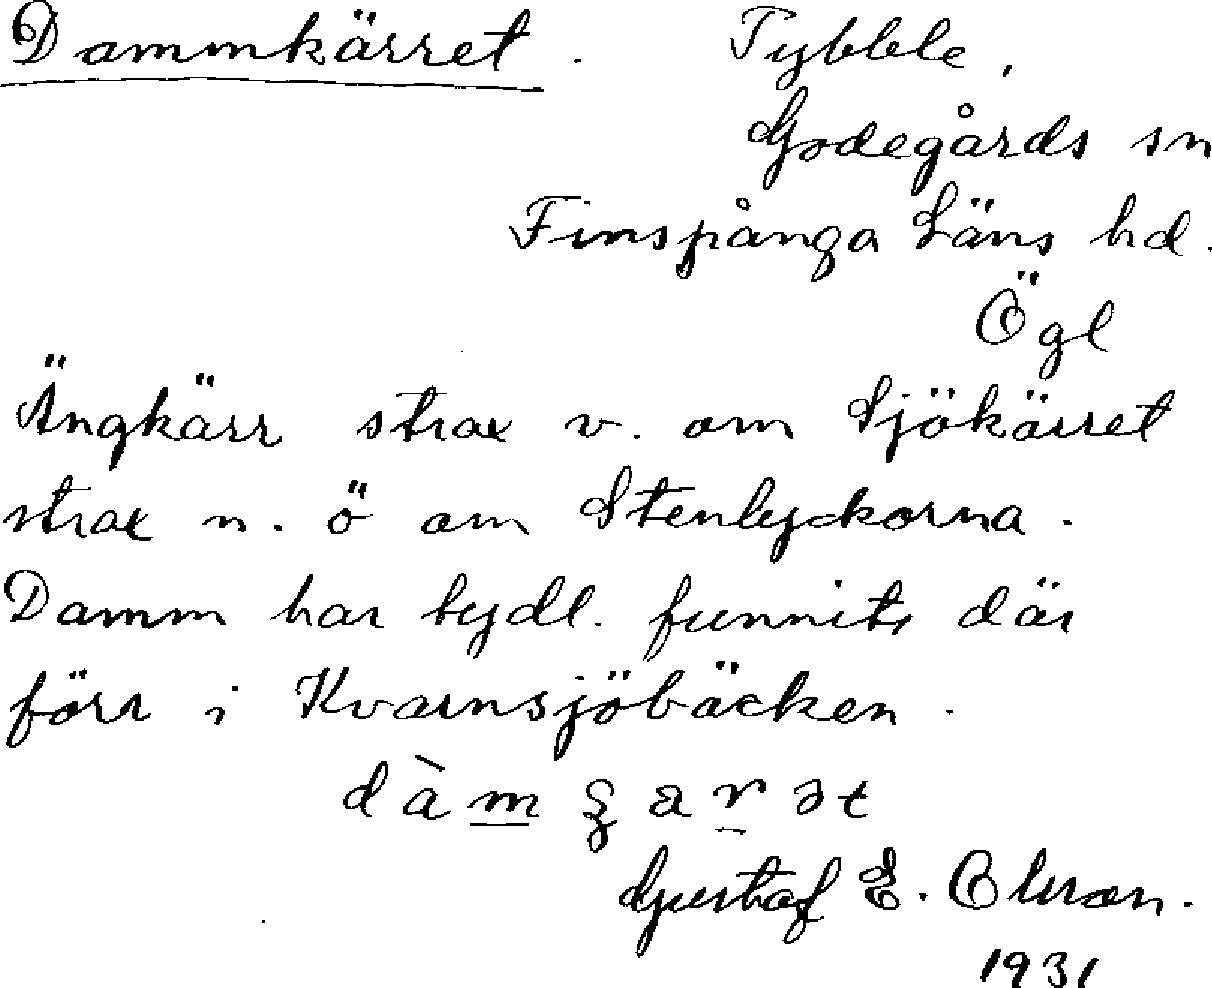 Dammkärret. Tybble,
Godegårds sn
Finspånga Läns hd.
Ögl
Ängkärr strax v. om Sjökärret
strax n. ö om Stenlyckorna.
Damm har tydl. funnits där
förr i Kvarnsjöbäcken.
Gustaf E. Olsson.
1931